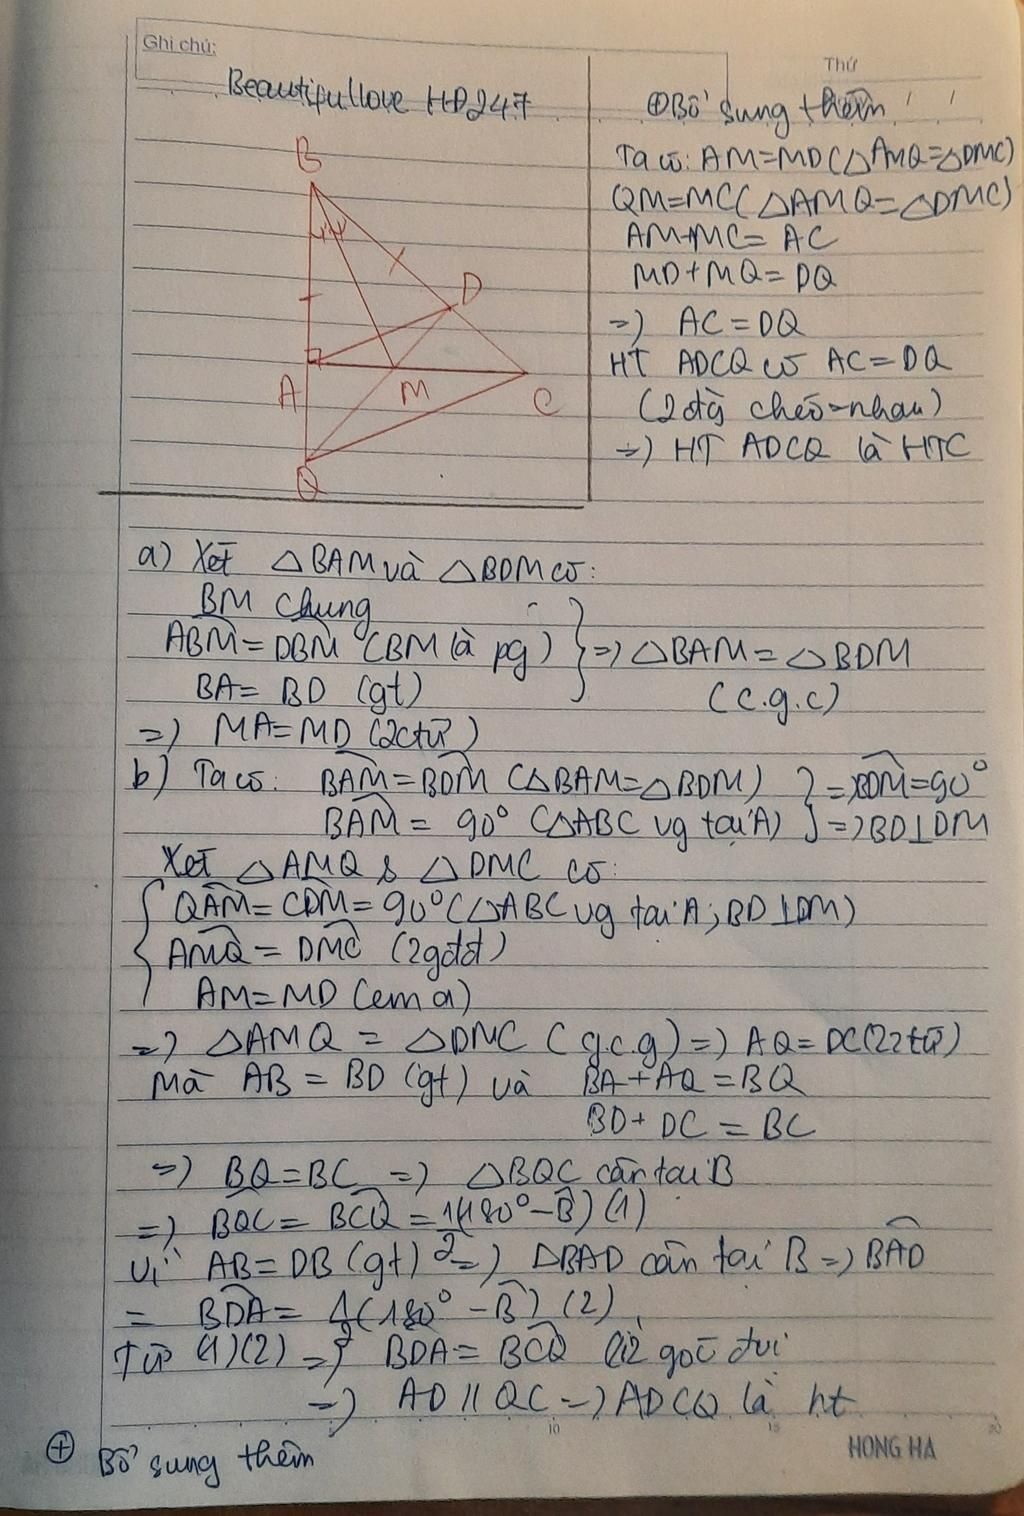 Ghi chú:
Thứ
Beautifullove HD247
B
D
A
M
C
Q
⊕Bổ sung thêm
Ta có: AM=MD(△AMQ=△DMC)
QM=MC(△AMQ=△DMC)
AM+MC= AC
MD+MQ=DQ
=) AC=DQ
HT ADCQ có AC=DQ
(2 đg chéo=nhau)
=) HT ADCQ là HTC
a) Xét △BAM và △BDM có:
BM chung
ABM=DBM (BM là pg) }=) △BAM= △BDM
BA= BD (gt) (c.g.c)
=) MA=MD (2ctứ)
b) Ta có: BAM=BDM (△BAM=△BDM) }=)BDM=90°
BAM= 90° (△ABC vg tại A) =)BD⊥DM
Xét △AMQ & △DMC có:
QAM=CDM=90°(△ABC vg tại A;BD⊥DM)
AMQ= DMC (2gđđ)
AM=MD (em a)
=) △AMQ = △DMC (g.c.g)=) AQ=DC(2 tứ)
Mà AB= BD (gt) và BA+AQ=BQ
BD+ DC= BC
=) BQ=BC =) △BQC cân tại B
=) BQC= BCQ=1/2(180°-B)(1)
Vì AB=DB(gt) =) △BAD cân tại B=)BAD
= BDA= 1/2(180°-B) (2)
Từ (1)(2) =) BDA=BCQ góc đvị
=) AD//QC=)ADCQ là ht
⊕ Bổ sung thêm
10
15
20
HONG HA